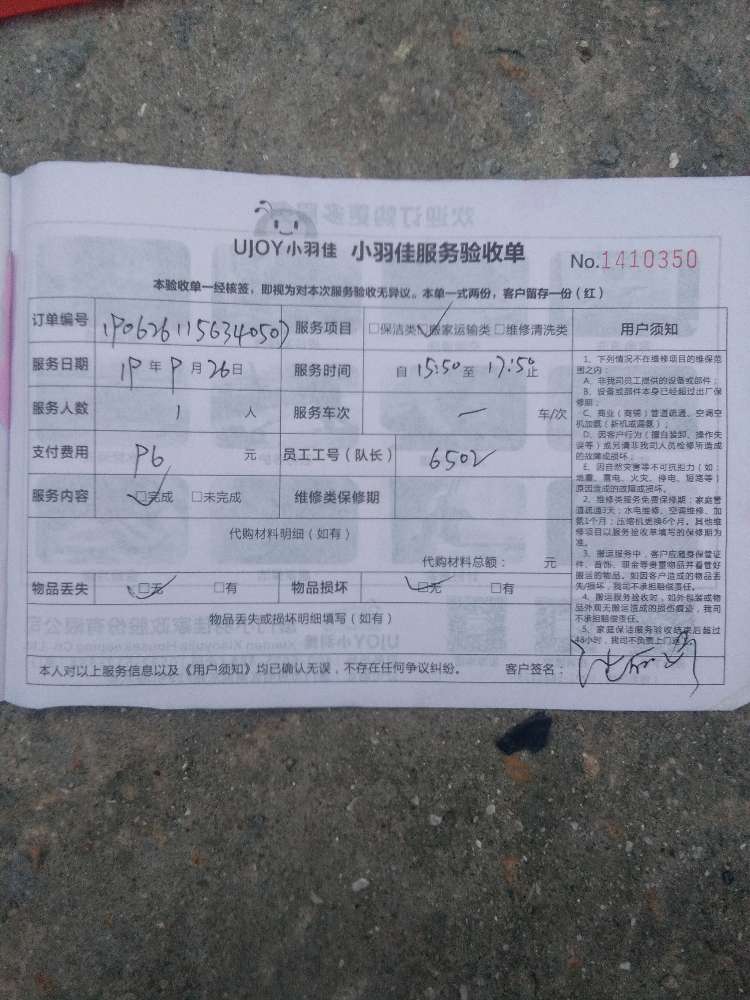 UJOY小羽佳 小羽佳服务验收单 No.1410350
本验收单一经核签，即视为对本次服务验收无异议。本单一式两份，客户留存一份（红）
订单编号 190626115634050 服务项目 □保洁类 □搬家运输类 □维修清洗类
服务日期 19年9月26日 服务时间 自15:50至17:50止
服务人数 1 人 服务车次 一 车/次
支付费用 96 元 员工工号（队长） 6502
服务内容 □完成 □未完成 维修类保修期
代购材料明细（如有）
代购材料总额： 元
物品丢失 □无 □有 物品损坏 □无 □有
物品丢失或损坏明细填写（如有）
本人对以上服务信息以及《用户须知》均已确认无误，不存在任何争议纠纷。 客户签名：
用户须知
1、下列情况不在维修项目的维保范
围之内：
A、非我司员工提供的设备或部件；
B、设备或部件本身已经超过出厂保
修期；
C、商业（商铺）管道疏通、空调空
机加氨（新机或漏氨）；
D、因客户行为（擅自装卸、操作失
误等）或另请非我司人员检修所造成
的故障或损坏；
E、因自然灾害等不可抗力（如：
地震、雷电、火灾、停电、短路等）
原因造成的故障或损坏。
2、维修类服务免费保修期：家庭管
道疏通3天；水电维修、空调维修、加
氨1个月；压缩机更换6个月。其他维
修项目以服务验收单填写的保修期为
准。
3、搬运服务中，客户应随身保管证
件、首饰、现金等贵重物品并看管好
搬运的物品。如因客户造成的物品丢
失/损坏，我司不承担赔偿责任。
4、搬运服务验收时，如外包装或物
品外观无搬运造成的损伤痕迹，我司
不承担赔偿责任。
5、家庭保洁服务验收结束后超过
48小时，我司不负责上门